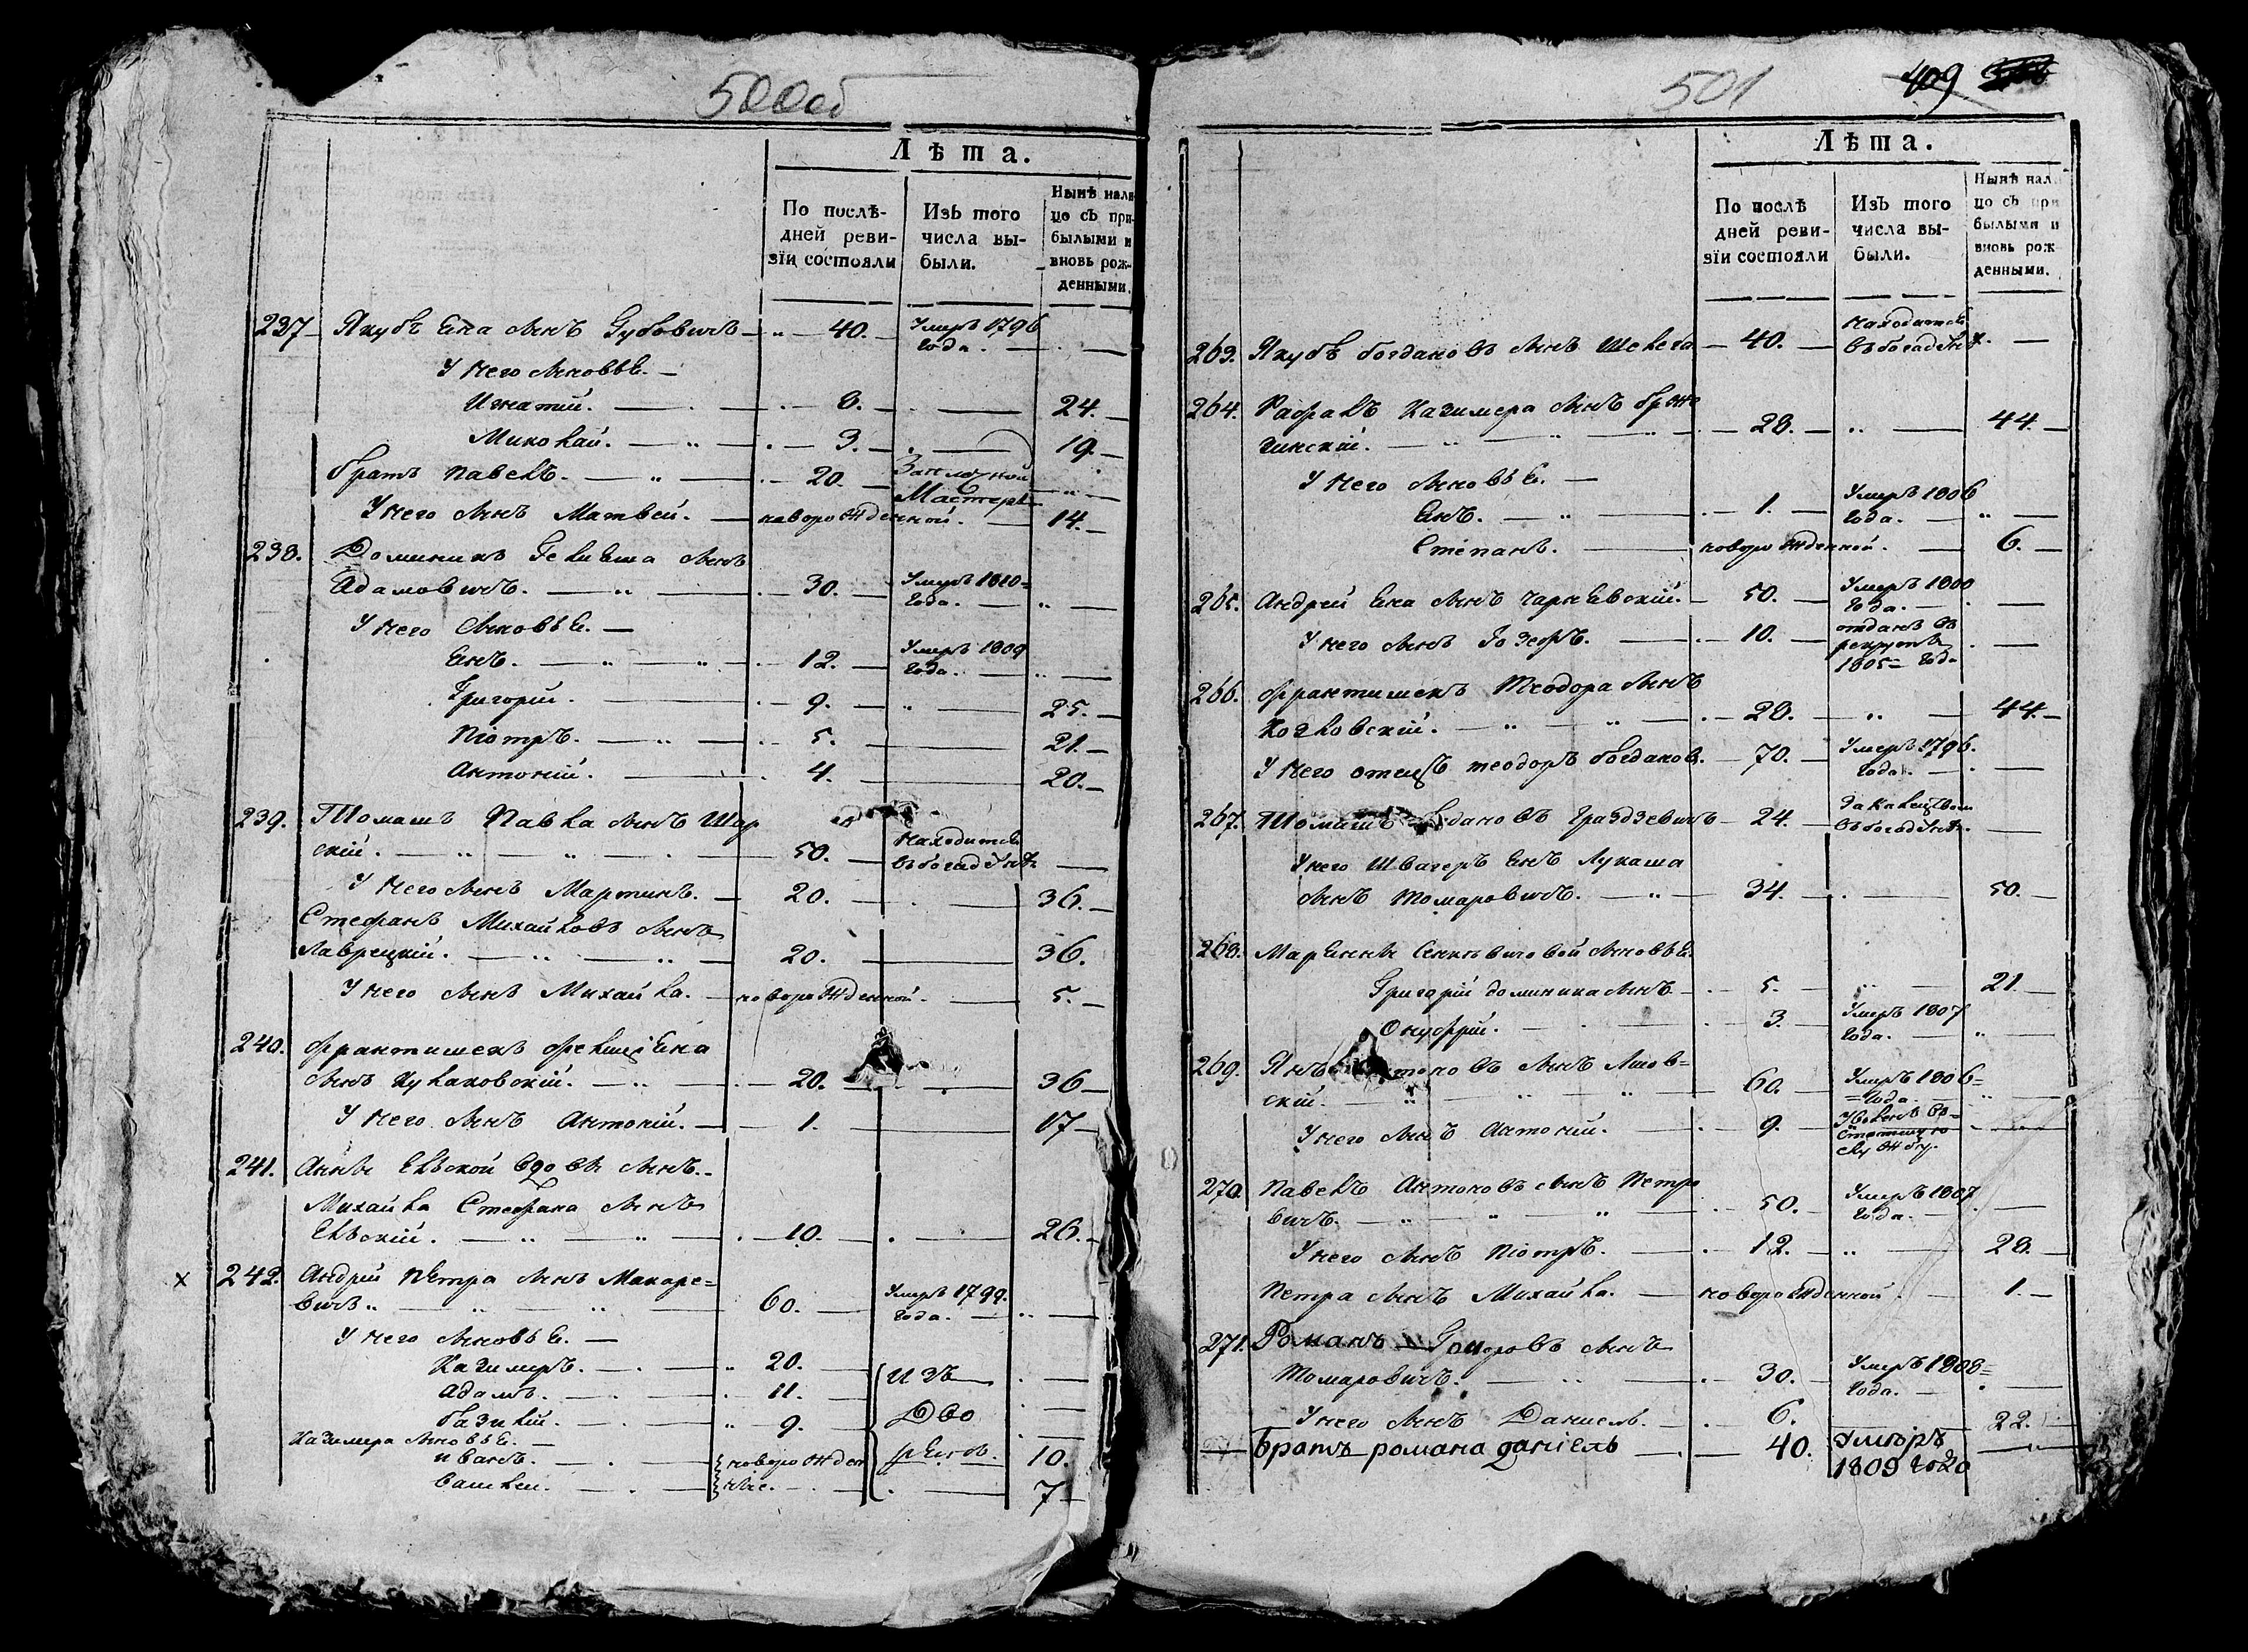 500об
Лѣта.
По послѣ-
дней реви-
зїи состояли
Изъ того
числа вы-
были.
Нынѣ нали
цо съ при-
былыми и
вновь рож-
денными.
237 Якубъ Яна сынъ 40. Умеръ 1796
года.
У него сыновья.
Игнатій. 8. 24.
Миколай. 3. 19.
братъ павелъ. 20.
У него сынъ Матвей. новорожденной. 14.
238. Доминикъ сынъ
Адамовичъ. 30. Умеръ 1810
года.
У него сыновья.
Янъ. 12. Умеръ 1809
года.
Григорій. 9. 25.
Піотръ. 5. 21.
Антоній. 4. 20.
239. Томашъ Павла сынъ
скій. 50. Находится
въ богадѣлнѣ
У него сынъ Мартинъ. 20. 36.
Стефанъ Михайловъ сынъ
Лаврецкій. 20. 36.
У него сынъ Михайла. новорожденной. 5.
240. Франтишекъ
сынъ Кулаковскій. 20. 36
У него сынъ Антоній. 1. 17
241. Анны вдовы сынъ.
Михайла Стефана сынъ
10. 26.
х 242. Андрей Петра сынъ Макаре=
вичъ 60. Умеръ 1799.
года.
У него сыновья.
Казимеръ. 20. изъ
Адамъ. 11. Дво
базилій. 9. рянъ.
Казимера сыновья.
иванъ. новорожден 10.
ные. 7
501 409
Лѣта.
По послѣ
дней реви-
зїи состояли
Изъ того
числа вы-
были.
Нынѣ нал
цо съ при
былыми и
вновь рож
денными.
263. Якубъ богдановъ сынъ Шелега 40. Находится
въ богадѣлнѣ
264. Рафалъ Казимера сынъ
28. 44.
У него сыновья.
Янъ. 1. Умеръ 1806
года.
Степанъ. новорожденной. 6.
265. Андрей Яна сынъ Чарневскій. 50. Умеръ 1800
года.
У него сынъ Іозефъ. 10. отданъ въ
рекруты
1805 года
266. Франтишекъ Теодора сынъ
Козловскій. 28. 44.
У него отецъ теодоръ богданов. 70. Умеръ 1796.
года.
267. Томашъ 24.
въ богадѣлнѣ.
У него Швагеръ Янъ Лукаша
сынъ Томаровичъ. 34. 50.
268. Маріанны сыновья
Григорій доминика сынъ 5. 21.
Онуфрій. 3. Умеръ 1807
года.
269. Янъ сынъ
скій. 60. Умеръ 1806
года.
У него сынъ Антоній. 9.
службу.
270. Павелъ Антоновъ сынъ Петро
вичъ. 50. Умеръ 1807
года.
У него сынъ Піотръ. 12. 28.
Петра сынъ Михайла. новорожденной. 1.
271. Романъ сынъ
Томаровичъ. 30. Умеръ 1808
года.
У него сынъ Даніелъ. 6. 22.
братъ романа даніелъ 40. Умеръ
1809 года